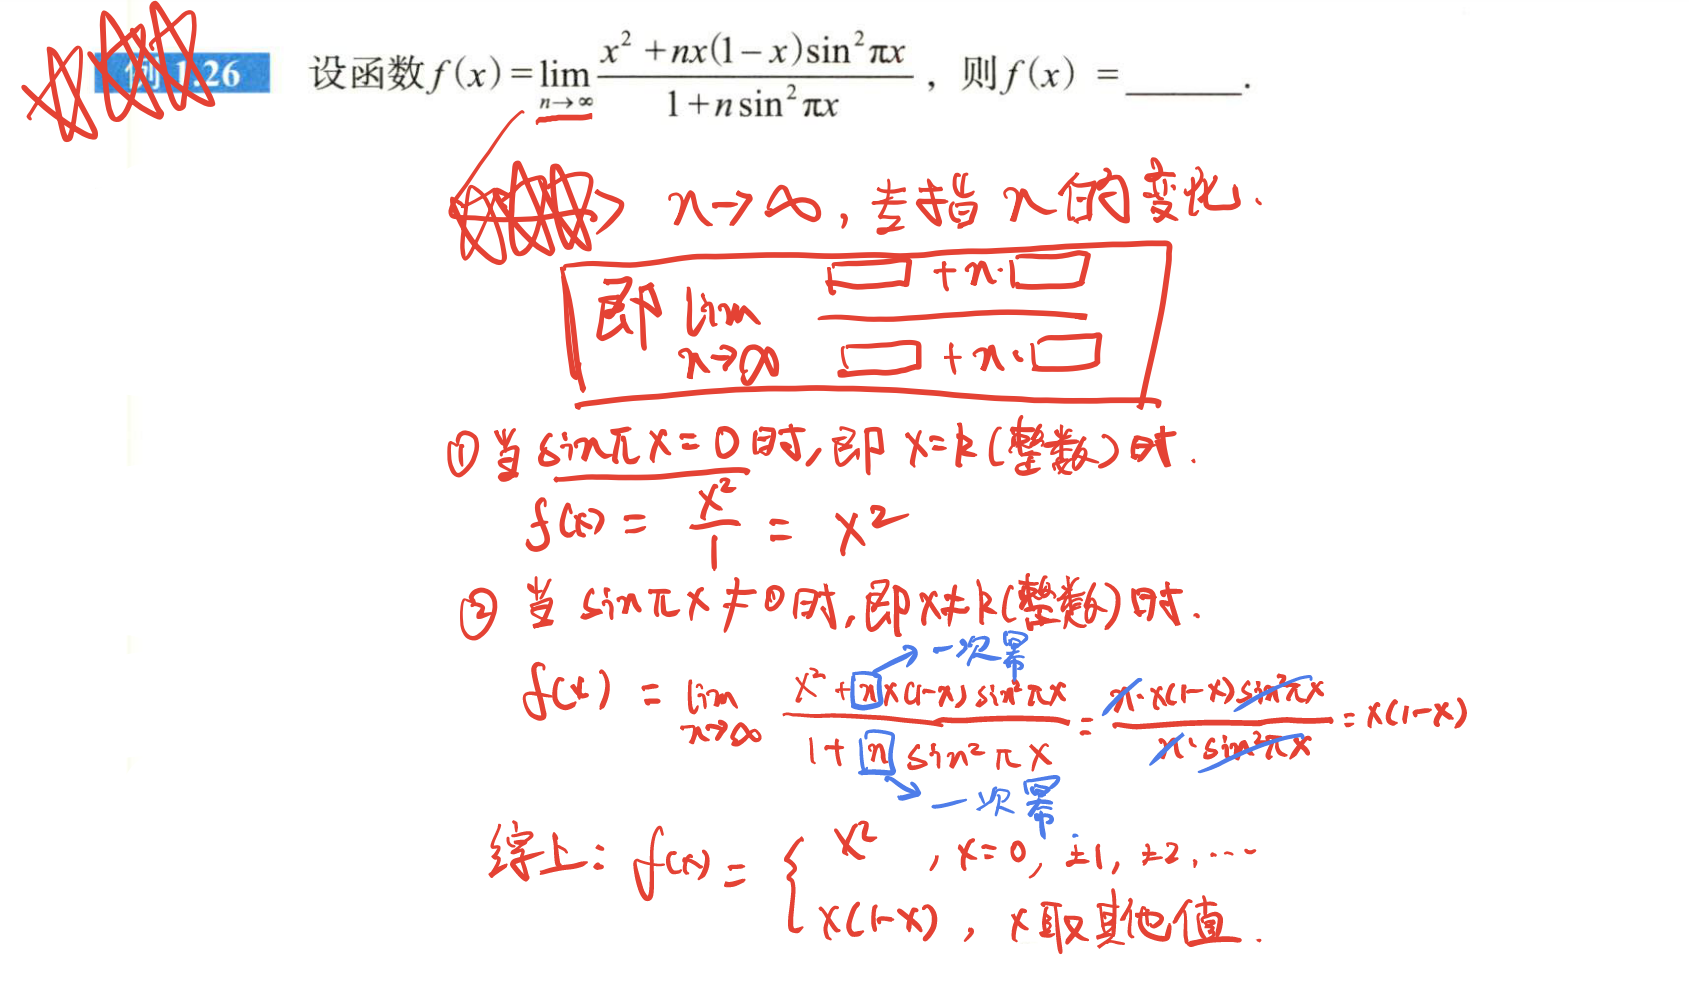 例 1.26 设函数 f(x) = lim_{n→∞} \frac{x² + nx(1-x)sin²πx}{1+n sin²πx}, 则 f(x) = ______.
n→∞, 专指 n 的变化.
即 lim_{n→∞} \frac{□ + n·□}{□ + n·□}
① 当 sinπx = 0 时, 即 x = k (整数) 时.
f(x) = \frac{x²}{1} = x²
② 当 sinπx ≠ 0 时, 即 x ≠ k (整数) 时.
一次幂
f(x) = lim_{n→∞} \frac{x² + nx(1-x) sin²πx}{1 + n sin²πx} = \frac{n·x(1-x) sin²πx}{n·sin²πx} = x(1-x)
一次幂
综上: f(x) = { x², x = 0, ±1, ±2, ···
x(1-x), x 取其他值.